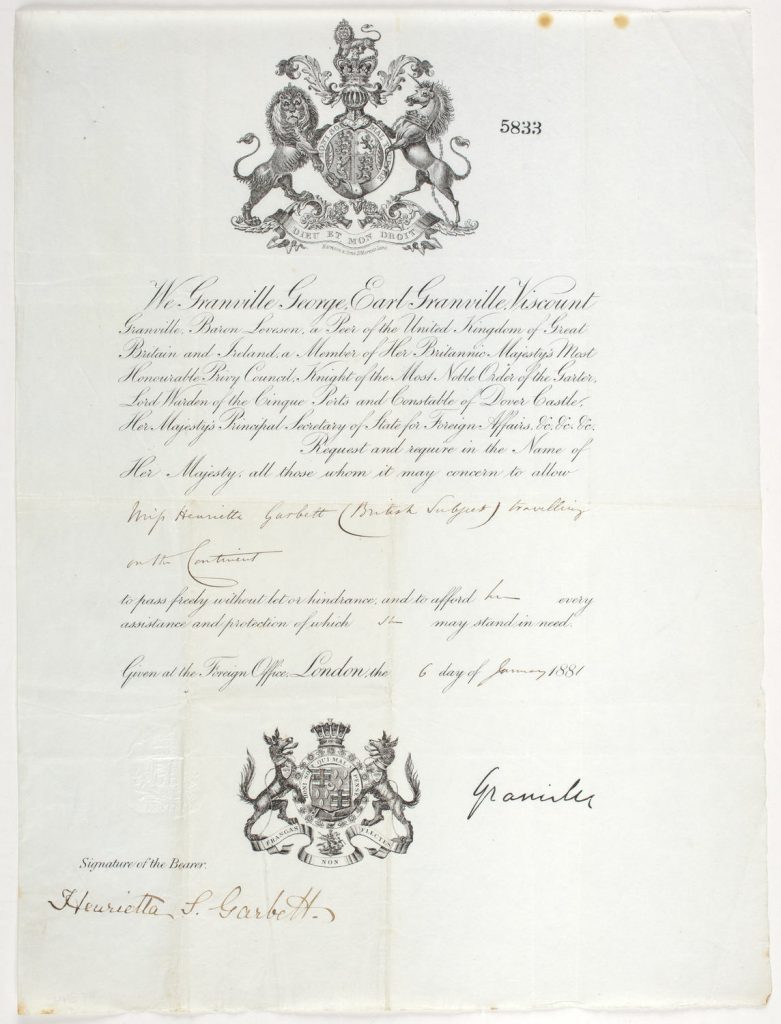 5833
HONI SOIT QUI MAL Y PENSE
DIEU ET MON DROIT
We Granville George, Earl Granville, Viscount
Granville, Baron Leveson, a Peer of the United Kingdom of Great
Britain and Ireland, a Member of Her Britannic Majesty's Most
Honourable Privy Council, Knight of the Most Noble Order of the Garter,
Lord Warden of the Cinque Ports and Constable of Dover Castle,
Her Majesty's Principal Secretary of State for Foreign Affairs, &c. &c. &c.
Request and require in the Name of
Her Majesty, all those whom it may concern to allow
Miss Henrietta Garbett (British Subject) travelling
on the Continent
to pass freely without let or hindrance, and to afford her every
assistance and protection of which she may stand in need.
Given at the Foreign Office, London, the 6 day of January 1881
HONI SOIT QUI MAL Y PENSE
FRANGAS NON FLECTES
Granville
Signature of the Bearer.
Henrietta S. Garbett.